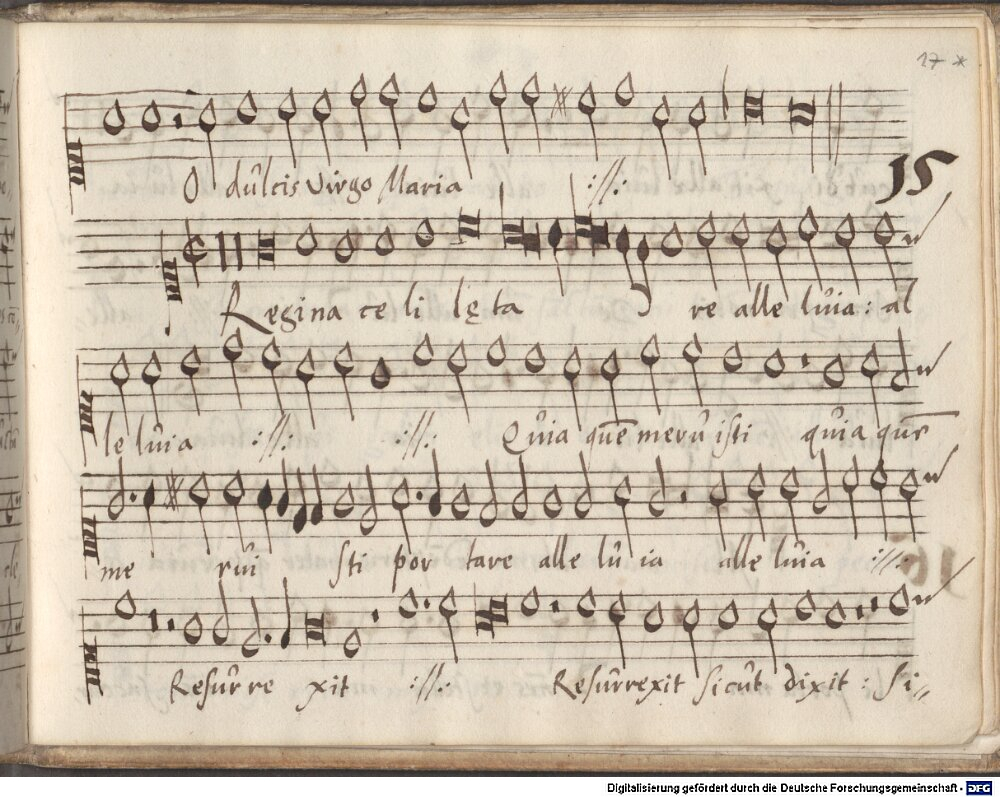 17 *
O dulcis virgo Maria :||:
15
Regina celi lęta re alleluia: al
leluia :||: :||: Quia quẽ meruisti quia quẽ
me rui sti portare alleluia alleluia :||:
Resurre xit :||: Resurrexit sicut dixit: si=
16
Digitalisierung gefördert durch die Deutsche Forschungsgemeinschaft - DFG